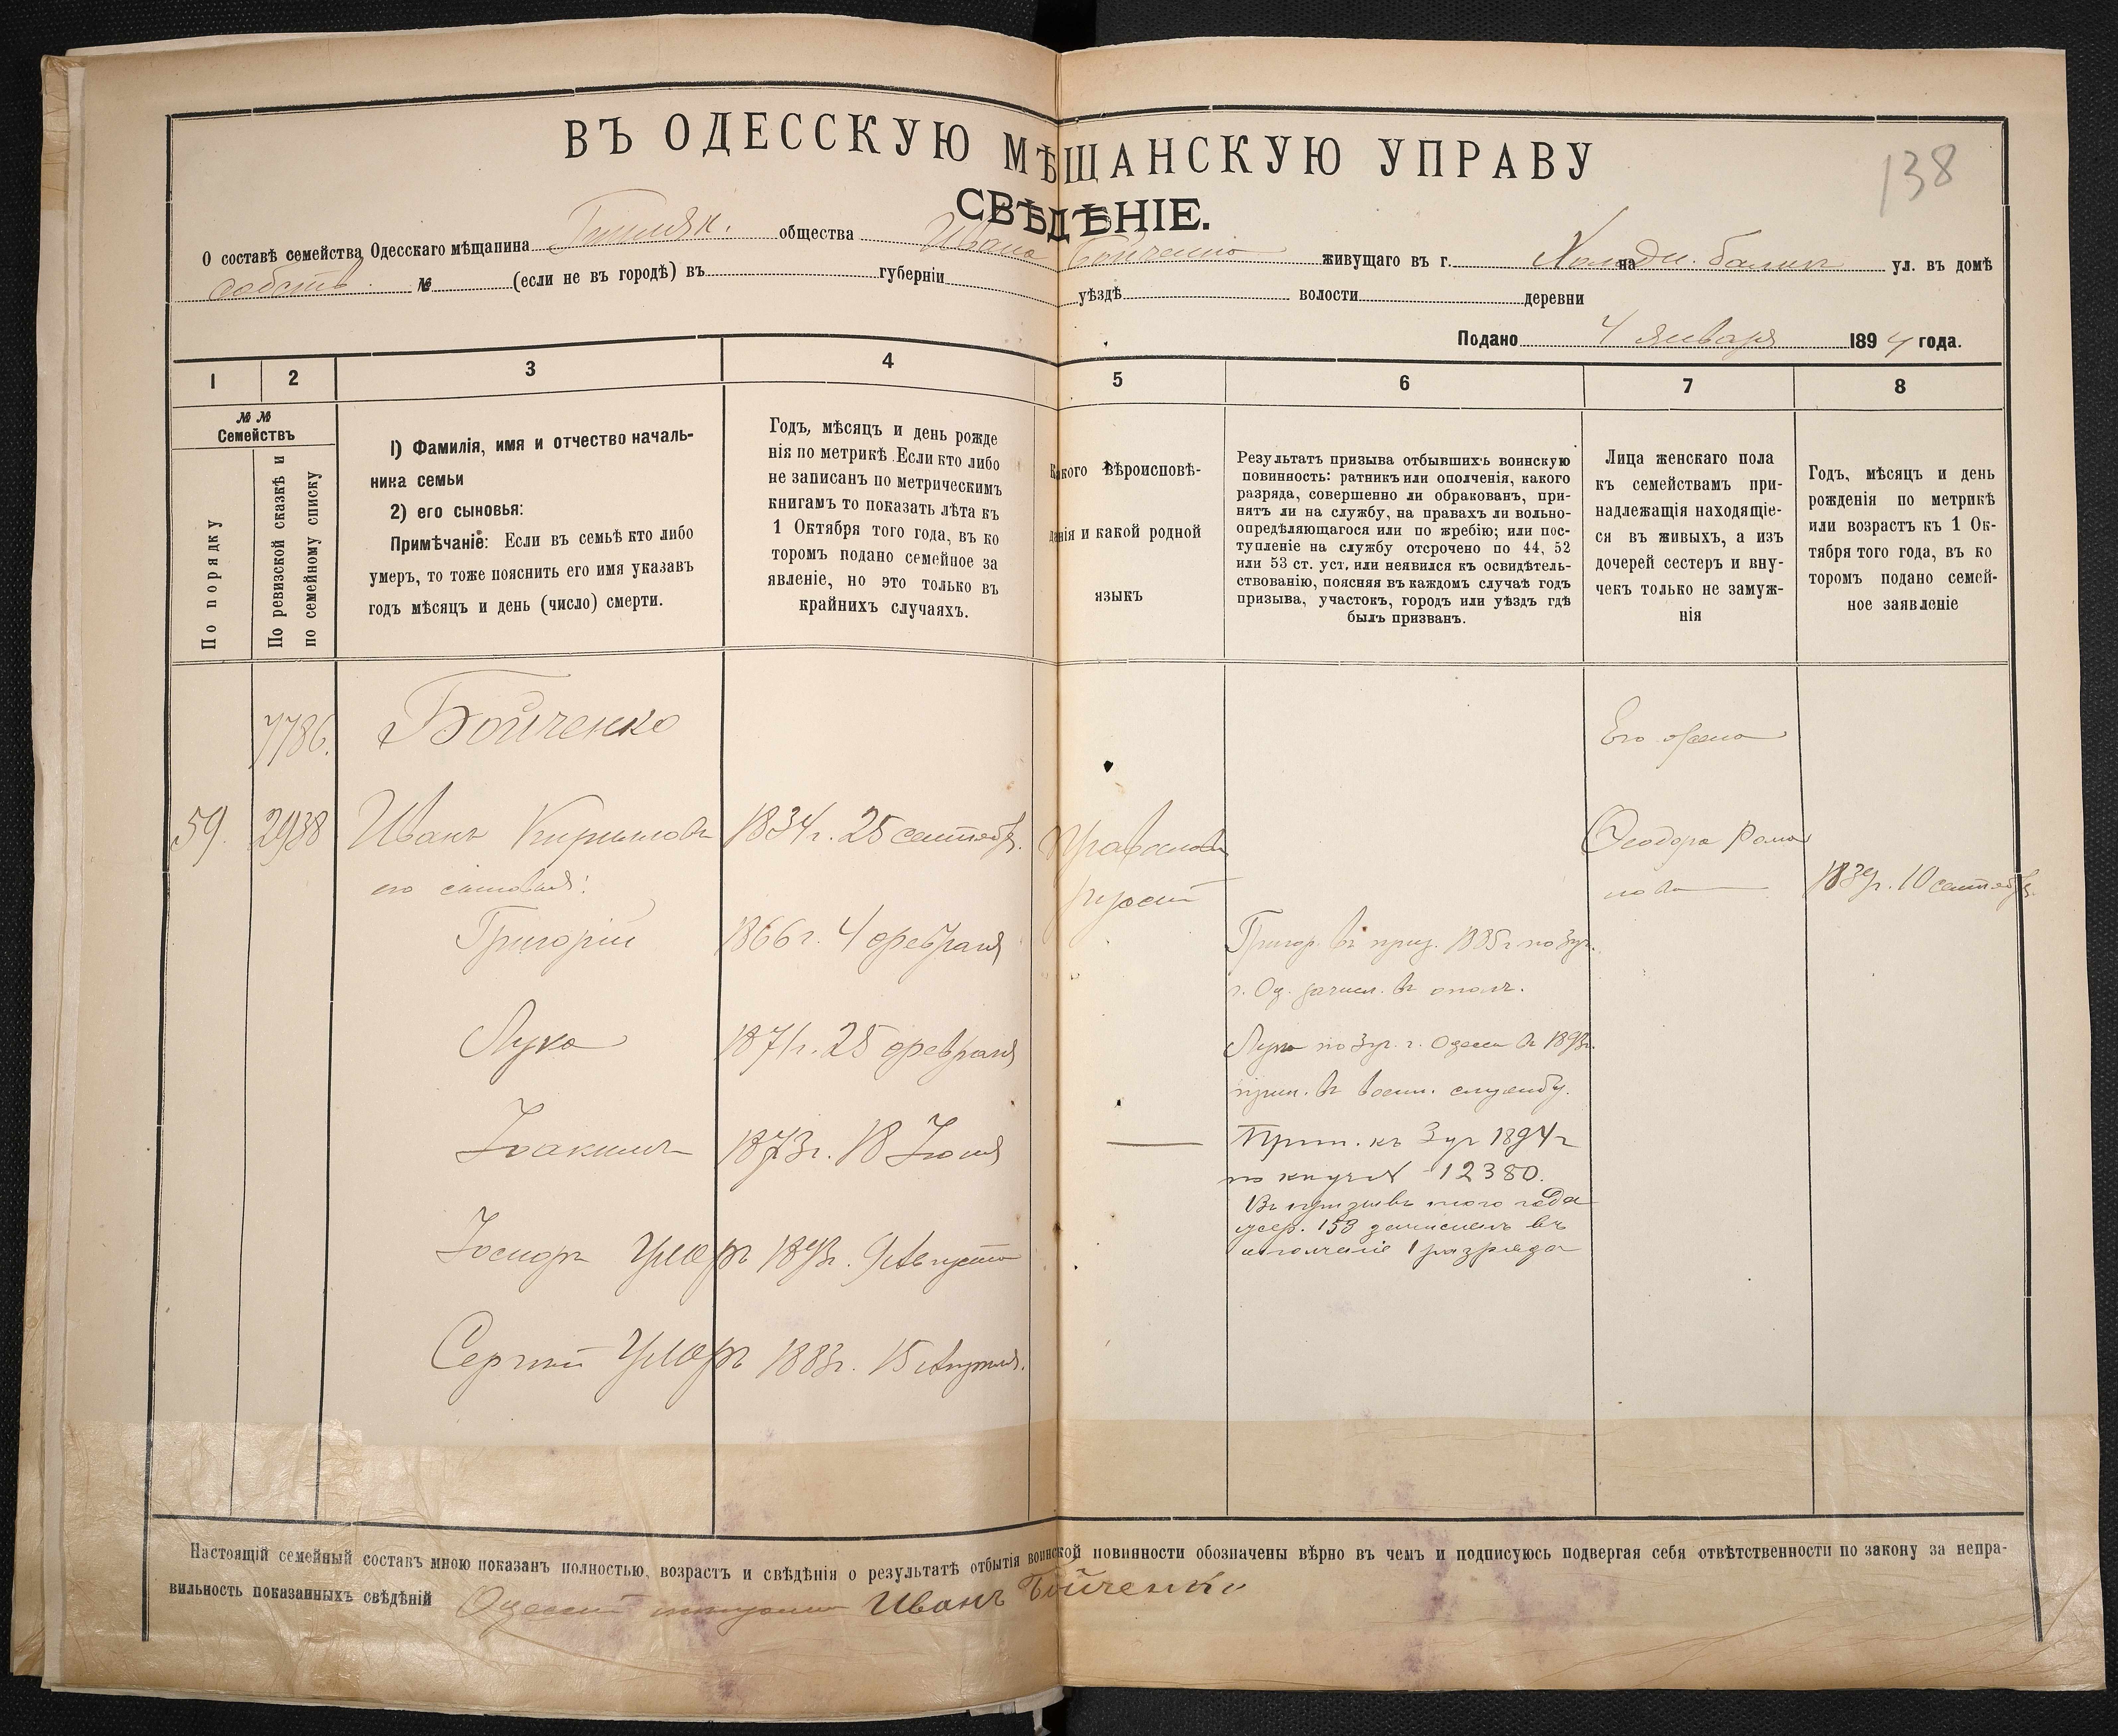 138
ВЪ ОДЕССКУЮ МѢЩАНСКУЮ УПРАВУ
СВѢДѢНІЕ.
О составѣ семейства Одесскаго мѣщанина общества Ивана Бойченко живущаго въ г. на Холодн. балкѣ ул. въ домѣ
собств. № (если не въ городѣ) въ губерніи уѣздѣ волости деревни
Подано 4 января 1894 года.
1 2 3 4 5 6 7 8
№ №
Семействъ
По порядку
По ревизской сказкѣ и
по семейному списку
1) Фамилія, имя и отчество началь-
ника семьи
2) его сыновья:
Примѣчаніе: Если въ семьѣ кто либо
умеръ, то тоже пояснить его имя указавъ
годъ мѣсяцъ и день (число) смерти.
Годъ, мѣсяцъ и день рожде
нія по метрикѣ. Если кто либо
не записанъ по метрическимъ
книгамъ то показать лѣта къ
1 Октября того года, въ ко
торомъ подано семейное за
явленіе, но это только въ
крайнихъ случаяхъ.
Какого вѣроисповѣ-
данія и какой родной
языкъ
Результатъ призыва отбывшихъ воинскую
повинность: ратникъ или ополченія, какого
разряда, совершенно ли обракованъ, при-
нятъ ли на службу, на правахъ ли вольно-
опредѣляющагося или по жребію; или пос-
тупленіе на службу отсрочено по 44, 52
или 53 ст. уст. или неявился къ освидѣтель-
ствованію, поясняя въ каждомъ случаѣ годъ
призыва, участокъ, городъ или уѣздъ гдѣ
былъ призванъ.
Лица женскаго пола
къ семействамъ при-
надлежащія находящіе-
ся въ живыхъ, а изъ
дочерей сестеръ и вну-
чекъ только не замуж-
нія
Годъ, мѣсяцъ и день
рожденія по метрикѣ
или возрастъ къ 1 Ок-
тября того года, въ ко
торомъ подано семей-
ное заявленіе
7786. Бойченко Его жена
59. 2938 Иванъ Кирилловъ 1834 г. 25 сентябр. Православн. Феодора Рома
его сыновья: русскій нова 1839 г. 10 сентябр.
Григорій 1866 г. 4 февраля Григор. въ приз. 1885 г. по 3 уч.
г. Од. зачисл. въ ополч.
Лука 1871 г. 25 февраля Лука по 3 уч. г. Одессы въ 1893 г.
прин. въ воен. службу.
Іоакимъ 1873 г. 18 Іюля Прип. къ 3 уч 1894 г
по книгѣ 12380.
Въ призывъ того года
жер. 153 зачисленъ въ
ополченіе 1 разряда
Іосифъ умеръ 1893 г. 9 Августа
Сергѣй умеръ 1883 г. 15 Апрѣля.
Настоящій семейный составъ мною показанъ полностью, возрастъ и свѣдѣнія о результатѣ отбытія воинской повинности обозначены вѣрно въ чемъ и подписуюсь подвергая себя отвѣтственности по закону за непра-
вильность показанныхъ свѣдѣній Одесскій мѣщанинъ Иванъ Бойченко